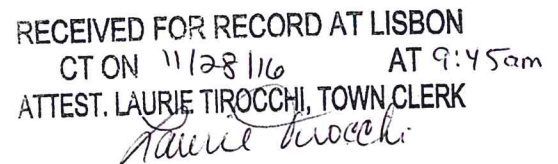 RECEIVED FOR RECORD AT LISBON
CT ON 11/28/16 AT 9:45am
ATTEST. LAURIE TIROCCHI, TOWN CLERK
Laurie Tirocchi